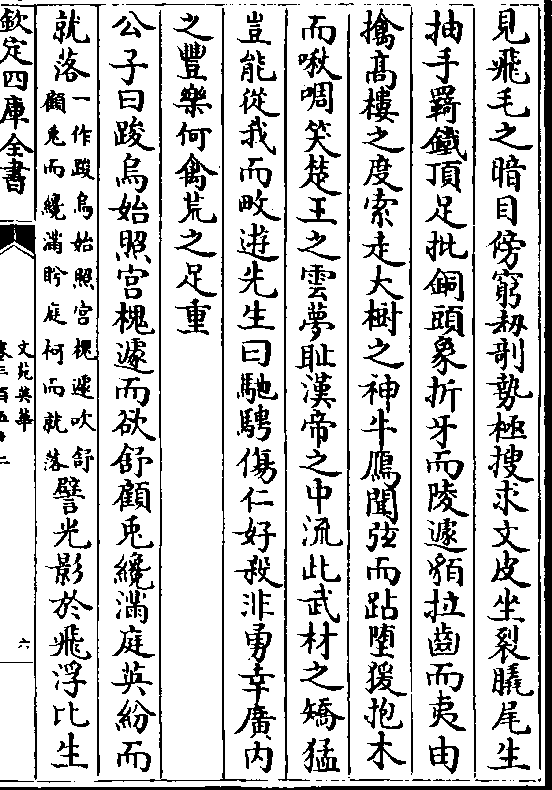 見飛毛之暗目傍窮刼剒勢極搜求文皮坐裂𦠆尾生
抽手羂鐵頂足批銅頭象折牙而陵遽貊拉齒而夷由
擒高樓之度索走大樹之神牛鴈聞弦而跕墮猨抱木
而啾啁笑楚王之雲夢耻漢帝之中流此武材之矯猛
豈能從我而畋遊先生曰馳騁傷仁好殺非勇幸廣内
之豐樂何禽荒之足重
公子曰踆烏始照宫槐遽而欲舒顧兎纔滿庭英紛而
就落一作踆烏始照宫槐遽吹舒顧兎而纔滿盻庭柯而就落譬光影於飛浮比生
欽定四庫全書
文苑英華
卷三百五十二
六